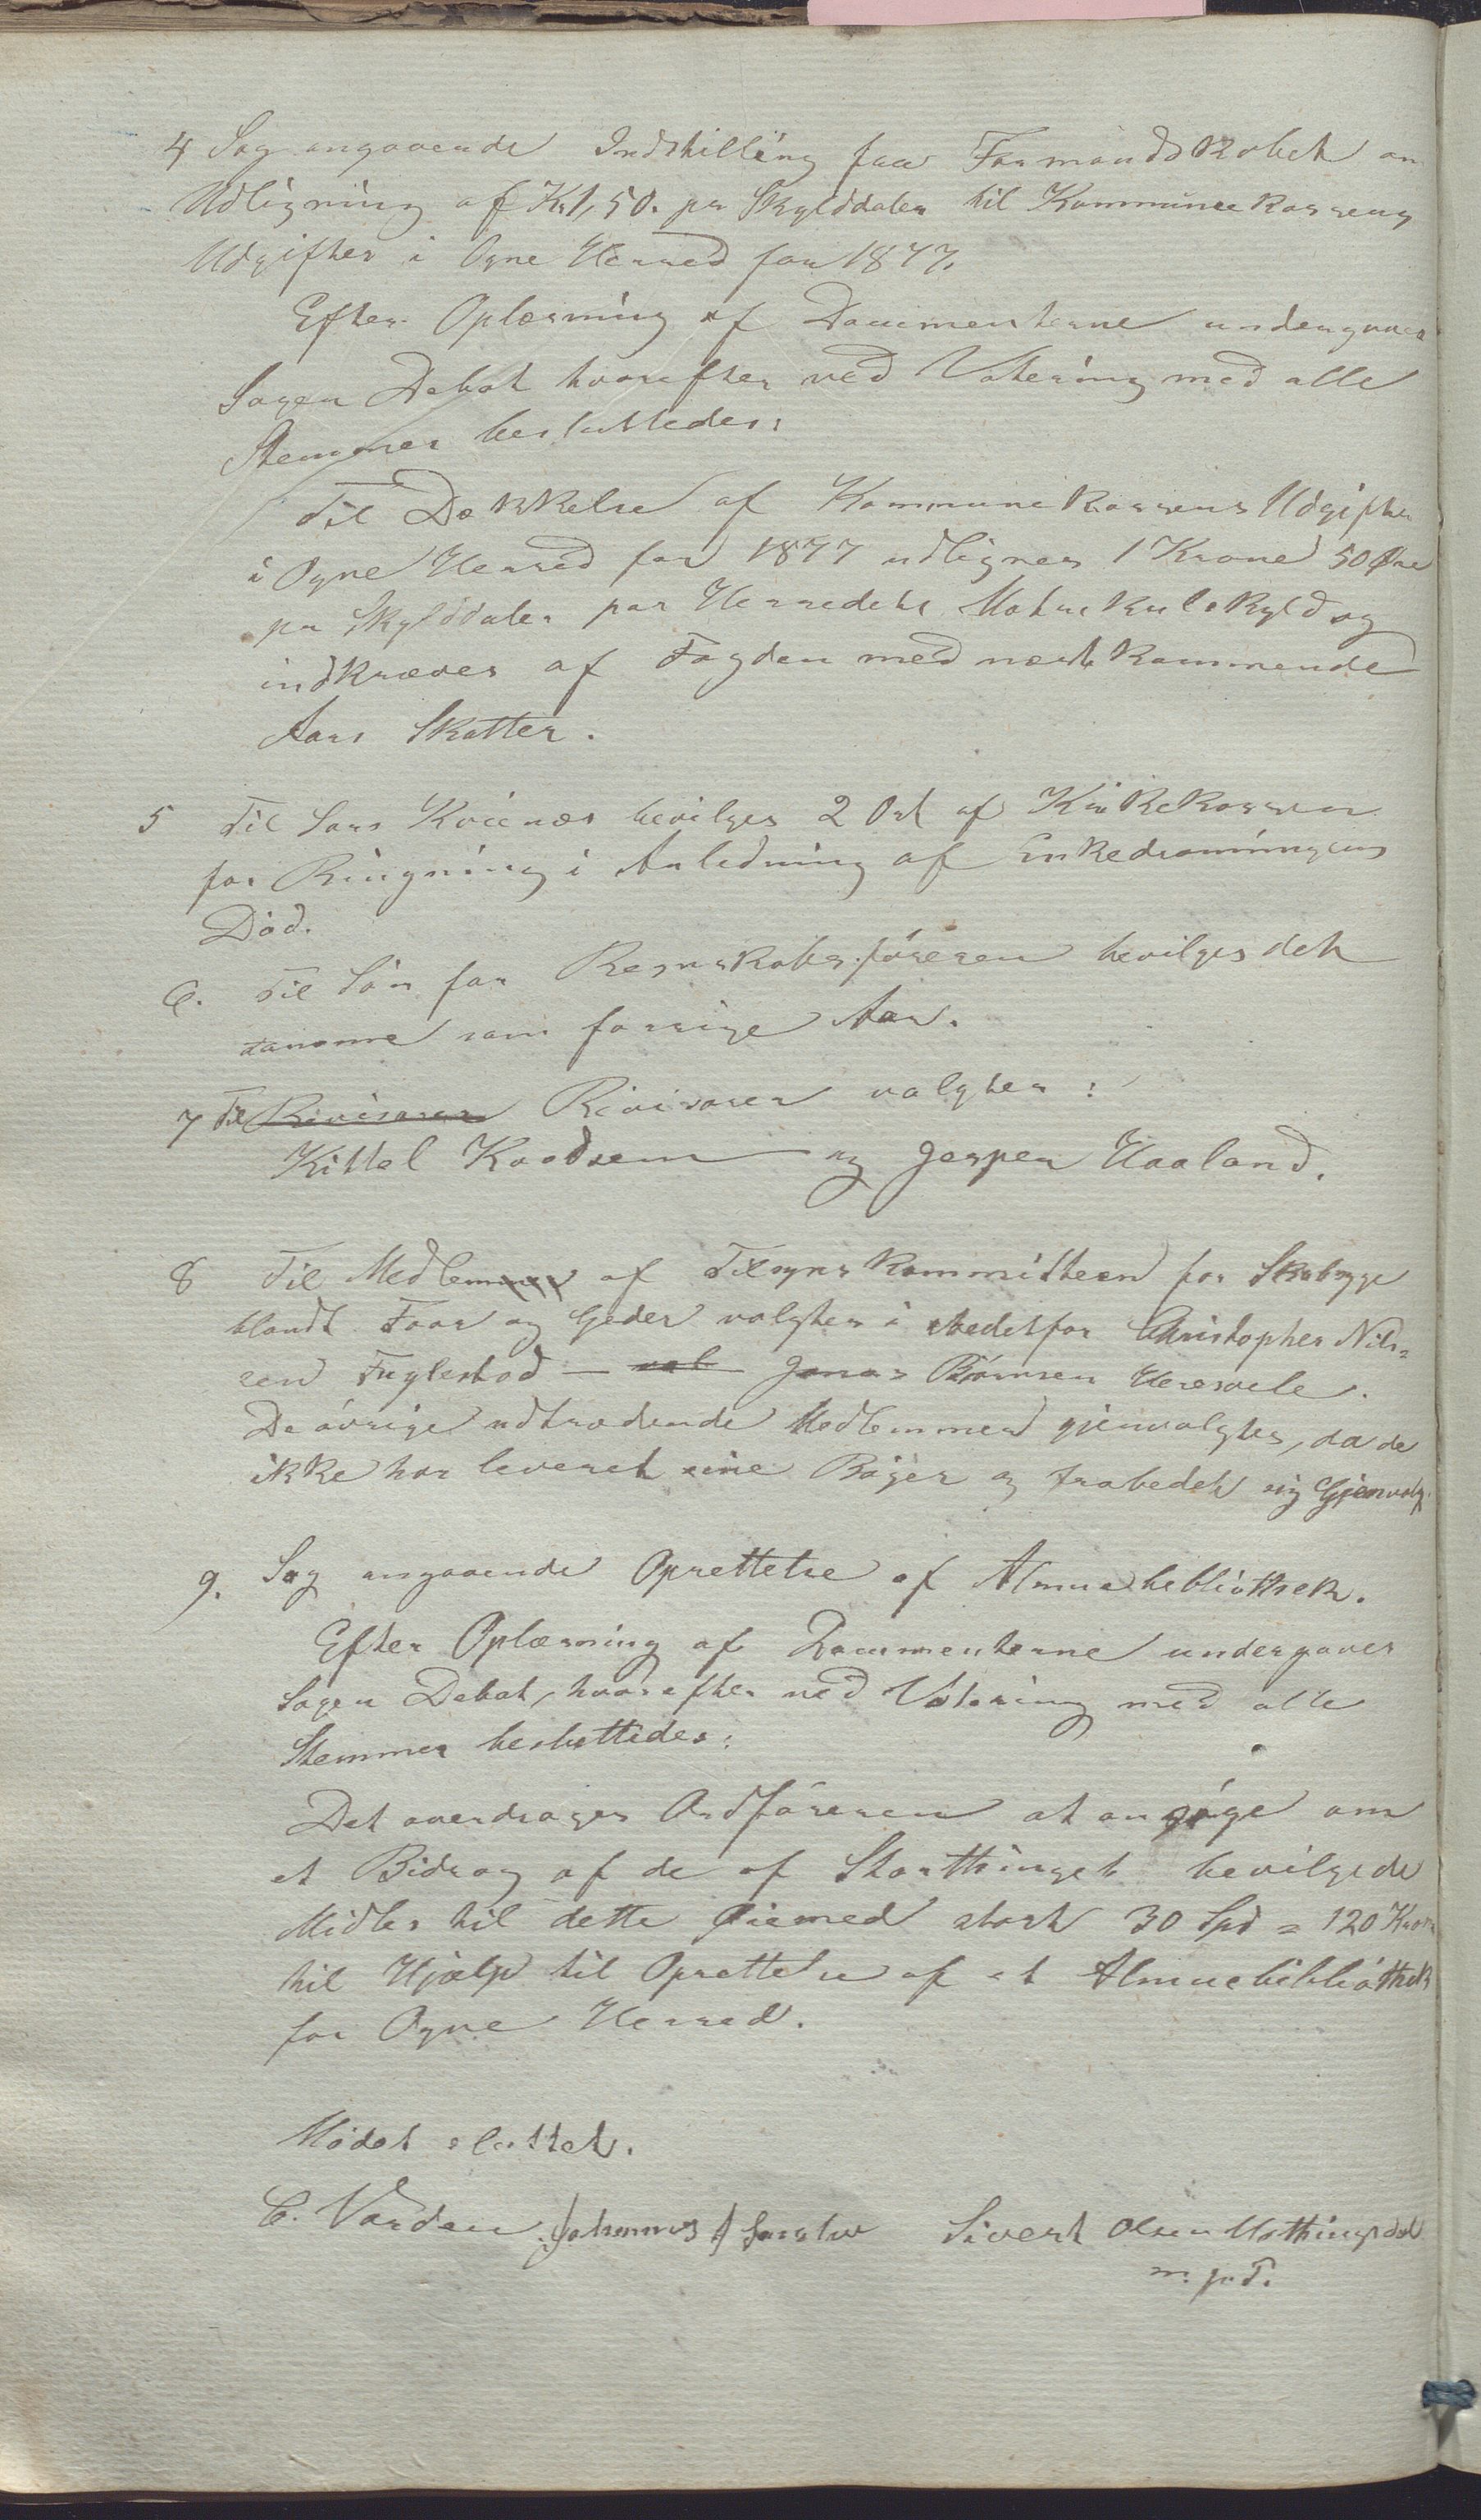 4 Sag angaaende Indstilling fra Formandskabet om
Udligning af Kr 1,50. pr Skylddaler til Kommunekassens
Udgifter i Ogne Herred for 1877.
Efter Oplæsning af Documenterne undergaves
Sagen Debat hvorefter ved Votering med alle
Stemmer besluttedes:
Til Dækkelse af Kommunekassens Udgifter
i Ogne Herred for 1877 udlignes 1 Krone 50 Øre
pr Skylddaler paa Herredets Matrikulskyld og
indkræves af Fogden med næstkommende
Aars Skatter.
5 Til Lars Kvienæs bevilges 2 Ort af Kirkekassen
for Ringning i Anledning af Enkedronningens
Död.
6. Til Lön for Regnskabsföreren bevilges det
samme som forrige Aar.
7 Til Revisorer Revisorer valgtes:
Kittel Kaadsem og Jesper Haaland.
8 Til Medlemmer af Tilsynskommitteen for Skabsyge
blandt Faar og Geder valgtes i stedetfor Christopher Nils=
sen Fuglestad — val Jonas Börnsen Heresvele.
De övrige udtrædende Medlemmer gjenvalgtes, da de
ikke har leveret sine Böger og frabedet sig Gjenvalg.
9. Sag angaaende Oprettelse af Almuebibliothek.
Efter Oplæsning af Documenterne undergaves
Sagen Debat, hvorefter ved Votering med alle
Stemmer besluttedes:
Det overdrages Ordföreren at ansöge om
et Bidrag af de af Storthinget bevilgede
Midler til dette Øiemed stort 30 Spd = 120 Kroner
til Hjælp til Oprettelse af et Almuebibliothek
for Ogne Herred.
Mödet sluttet.
C. Varden Johannes Sivert Olsen Mothingsdal
m. p. P.